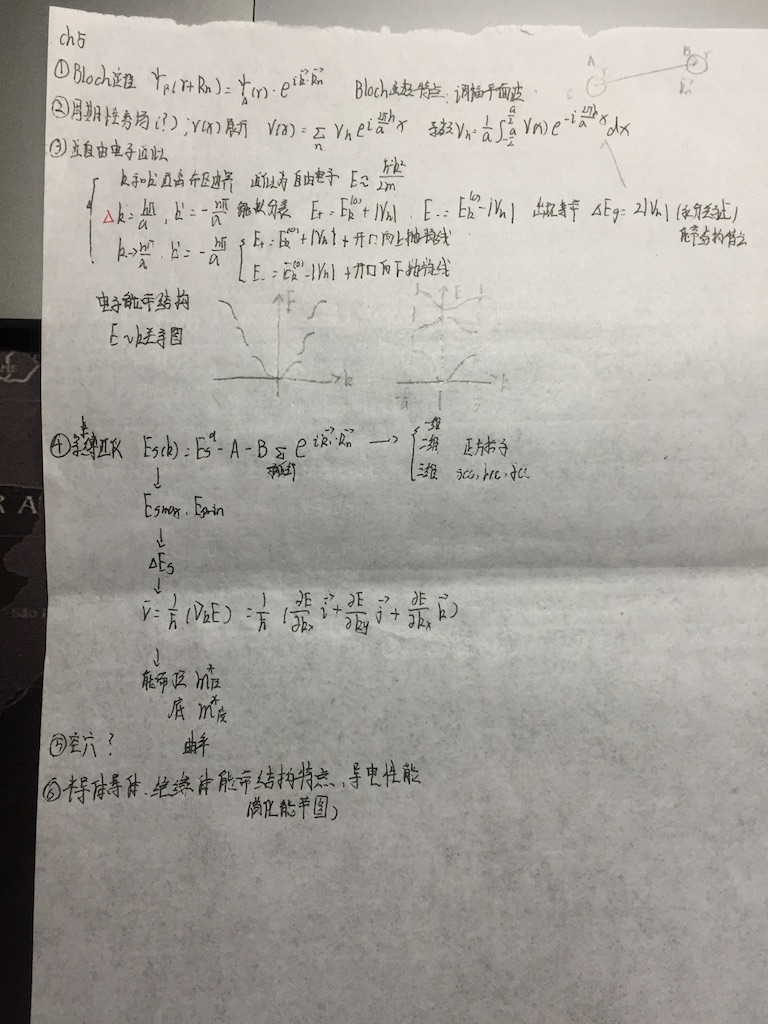 ch5
① Bloch定理 ψ_B(r+Rn) = ψ_A(r)·e^{i\vec{k}·\vec{Rn}} Bloch函数特点:调幅平面波
A r B r
C \vec{Rn}
② 周期性势场(?); V(x)展开 V(x) = Σ_n Vn e^{i\frac{2πn}{a}x} 系数Vn = \frac{1}{a}∫_{-\frac{a}{2}}^{\frac{a}{2}} V(x) e^{-i\frac{2πn}{a}x}dx
③ 近自由电子近似
k和k'远离布区边界 近似为自由电子 E≈\frac{ħ²k²}{2m}
△ k=\frac{nπ}{a}, k'=-\frac{nπ}{a} 能级分裂 E+=E_k^{(0)}+|Vn|, E-=E_k^{(0)}-|Vn| 出现禁带 ΔEg=2|Vn|
能带结构特点
k→\frac{nπ}{a}, k'=-\frac{nπ}{a} E+=E_k^{(0)}+|Vn|+开口向上抛物线
E-=E_k^{(0)}-|Vn|+开口向下抛物线
电子能带结构
E~k关系图
E k E k
④紧缚近似 Es(k)=Es^a-A-BΣe^{i\vec{k}·\vec{Rn}} →
一维
二维 正方格子
三维 scc, bcc, fcc
↓
Esmax, Esmin
↓
ΔEs
↓
\vec{v}=\frac{1}{ħ}(∇kE)=\frac{1}{ħ}(\frac{∂E}{∂kx}\vec{i}+\frac{∂E}{∂ky}\vec{j}+\frac{∂E}{∂kx}\vec{k})
↓
能带顶 m*顶
底 m*底
⑤空穴?
⑥半导体导体、绝缘体能带结构特点,导电性能
简化能带图)